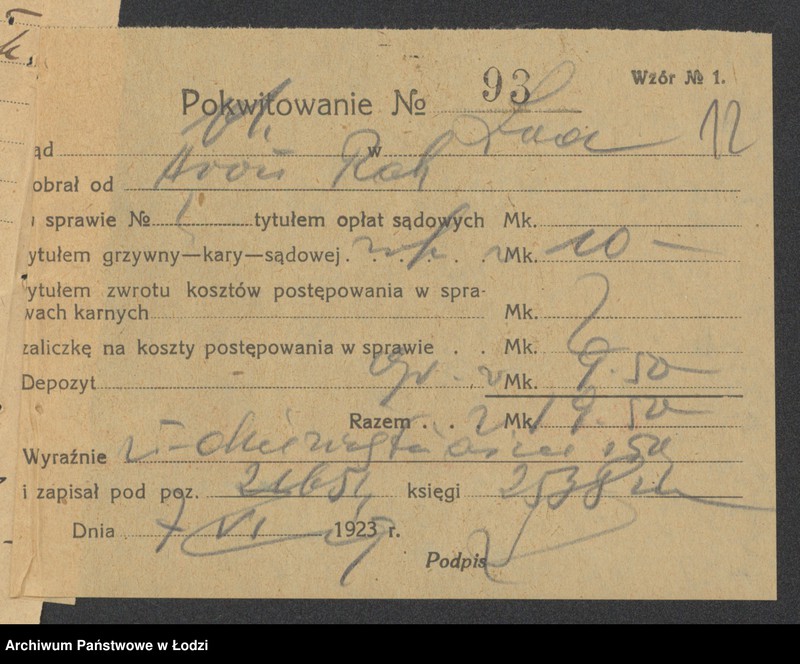 Wzór № 1.
Pokwitowanie № 93
12
ąd w
obrał od Aron Rak
sprawie № tytułem opłat sądowych Mk.
ytułem grzywny—kary—sądowej. Mk. 10 —
ytułem zwrotu kosztów postępowania w spra-
wach karnych Mk.
zaliczkę na koszty postępowania w sprawie . . Mk.
Depozyt Mk. 9.50
Razem . . Mk. 19.50
Wyraźnie
i zapisał pod poz. księgi
Dnia 7 VI 1923 r.
Podpis
Archiwum Państwowe w Łodzi